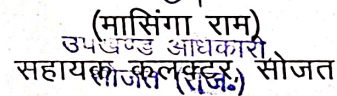 (मासिंगा राम)
उपखण्ड अधिकारी
सहायक कलक्टर, सोजत
सोजत (राज.)